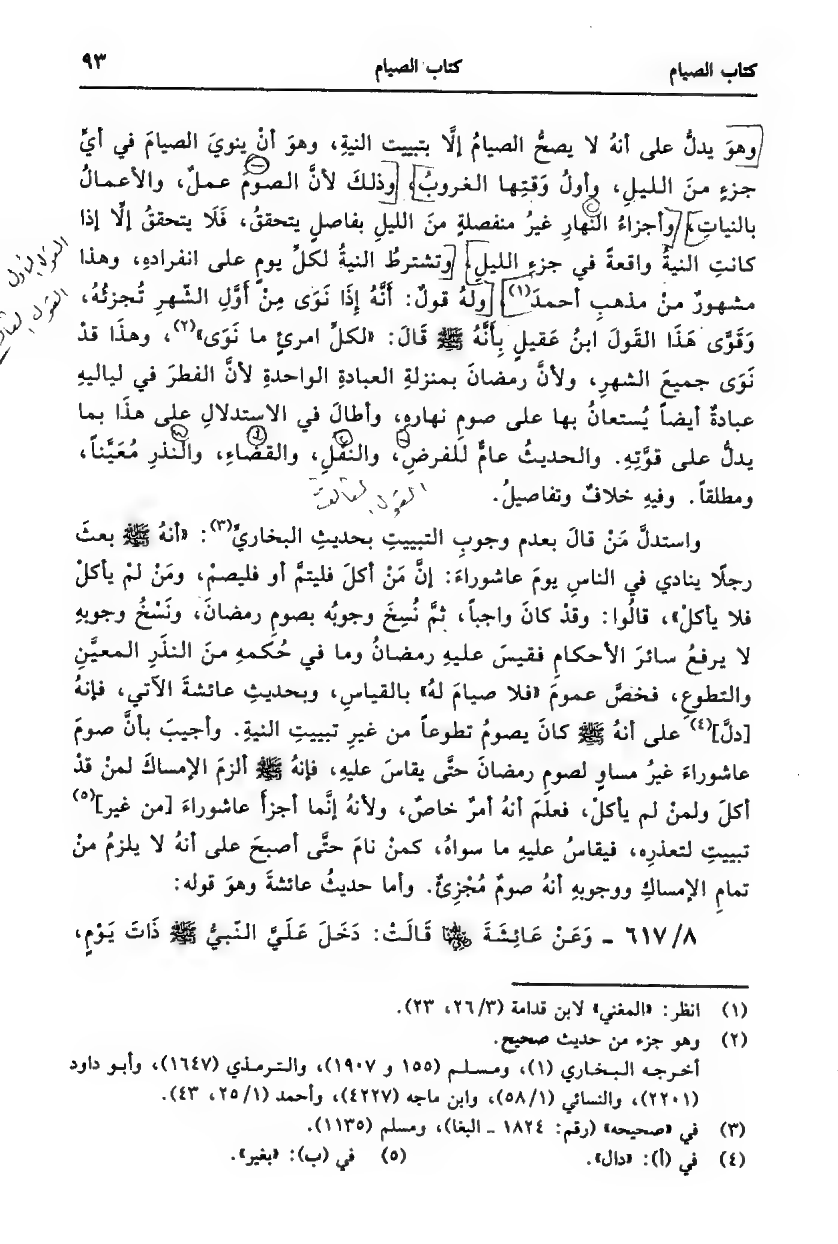 كتاب الصيام كتاب الصيام ٩٣
وهوَ يدلُّ على أنهُ لا يصحُّ الصيامُ إلَّا بتبييت النيةِ، وهوَ أنْ ينويَ الصيامَ في أيِّ
جزءٍ منَ الليلِ، وأولُ وَقتِها الغروبُ، وذلكَ لأنَّ الصومَ عملٌ، والأعمالُ
بالنياتِ، وأجزاءُ النهارِ غيرُ منفصلةٍ منَ الليلِ بفاصلٍ يتحققُ، فَلَا يتحققُ إلَّا إذا
كانتِ النيةُ واقعةً في جزءِ الليلِ، وتشترطُ النيةُ لكلِّ يومٍ على انفرادِهِ، وهذا
مشهورٌ منْ مذهبِ أحمدَ(١)، ولهُ قولٌ: أَنَّهُ إذَا نَوَى مِنْ أوَّلِ الشهرِ تُجزئُهُ،
وَقَوَّى هَذَا القولَ ابنُ عَقيلٍ بِأَنَّهُ ﷺ قَالَ: «لكلِّ امرئٍ ما نَوَى»(٢)، وهذا قدْ
نَوَى جميعَ الشهرِ، ولأنَّ رمضانَ بمنزلةِ العبادةِ الواحدةِ لأنَّ الفطرَ في لياليهِ
عبادةٌ أيضاً يُستعانُ بها على صومِ نهارهِ، وأطالَ في الاستدلالِ على هذَا بما
يدلُّ على قوَّتِهِ. والحديثُ عامٌّ للفرضِ، والنفْلِ، والقضاءِ، والنذرِ مُعَيَّناً،
ومطلقاً. وفيهِ خلافٌ وتفاصيلُ.
القول الثالث
القول الأول
القول
واستدلَّ مَنْ قالَ بعدم وجوبِ التبييتِ بحديثِ البخاريِّ(٣): «أنهُ ﷺ بعثَ
رجلًا ينادي في الناسِ يومَ عاشوراءَ: إنَّ مَنْ أكلَ فليتمَّ أو فليصمْ، ومَنْ لمْ يأكلْ
فلا يأكلْ»، قالُوا: وقدْ كانَ واجباً، ثمَّ نُسِخَ وجوبُه بصومِ رمضانَ، ونَسْخُ وجوبِهِ
لا يرفعُ سائرَ الأحكامِ فقيسَ عليهِ رمضانُ وما في حُكمهِ منَ النذَرِ المعيَّنِ
والتطوعِ، فخصَّ عمومَ «فلا صيامَ لهُ» بالقياسِ، وبحديثِ عائشةَ الآتي، فإنهُ
[دلَّ](٤) على أنهُ ﷺ كانَ يصومُ تطوعاً من غيرِ تبييتِ النيةِ. وأجيبَ بأنَّ صومَ
عاشوراءَ غيرُ مساوٍ لصومِ رمضانَ حتَّى يقاسَ عليهِ، فإنهُ ﷺ ألزمَ الإمساكَ لمنْ قدْ
أكلَ ولمنْ لم يأكلْ، فعلمَ أنهُ أمرٌ خاصٌ، ولأنهُ إنَّما أجزأَ عاشوراءَ [من غير](٥)
تبييتٍ لتعذرِه، فيقاسُ عليهِ ما سواهُ، كمنْ نامَ حتَّى أصبحَ على أنهُ لا يلزمُ منْ
تمامِ الإمساكِ ووجوبِهِ أنهُ صومٌ مُجْزِئٌ. وأما حديثُ عائشةَ وهوَ قوله:
٦١٧/٨ ـ وَعَنْ عَائِشَةَ رضي الله عنها قَالَتْ: دَخَلَ عَلَيَّ النّبيُّ ﷺ ذَاتَ يَوْمٍ،
(١) انظر: «المغني» لابن قدامة (٢٦/٣، ٢٣).
(٢) وهو جزء من حديث صحيح.
أخرجه البخاري (١)، ومسلم (١٥٥ و ١٩٠٧)، والترمذي (١٦٤٧)، وأبو داود
(٢٢٠١)، والنسائي (٥٨/١)، وابن ماجه (٤٢٢٧)، وأحمد (٢٥/١، ٤٣).
(٣) في «صحيحه» (رقم: ١٨٢٤ ـ البغا)، ومسلم (١١٣٥).
(٤) في (أ): «دال». (٥) في (ب): «بغير».